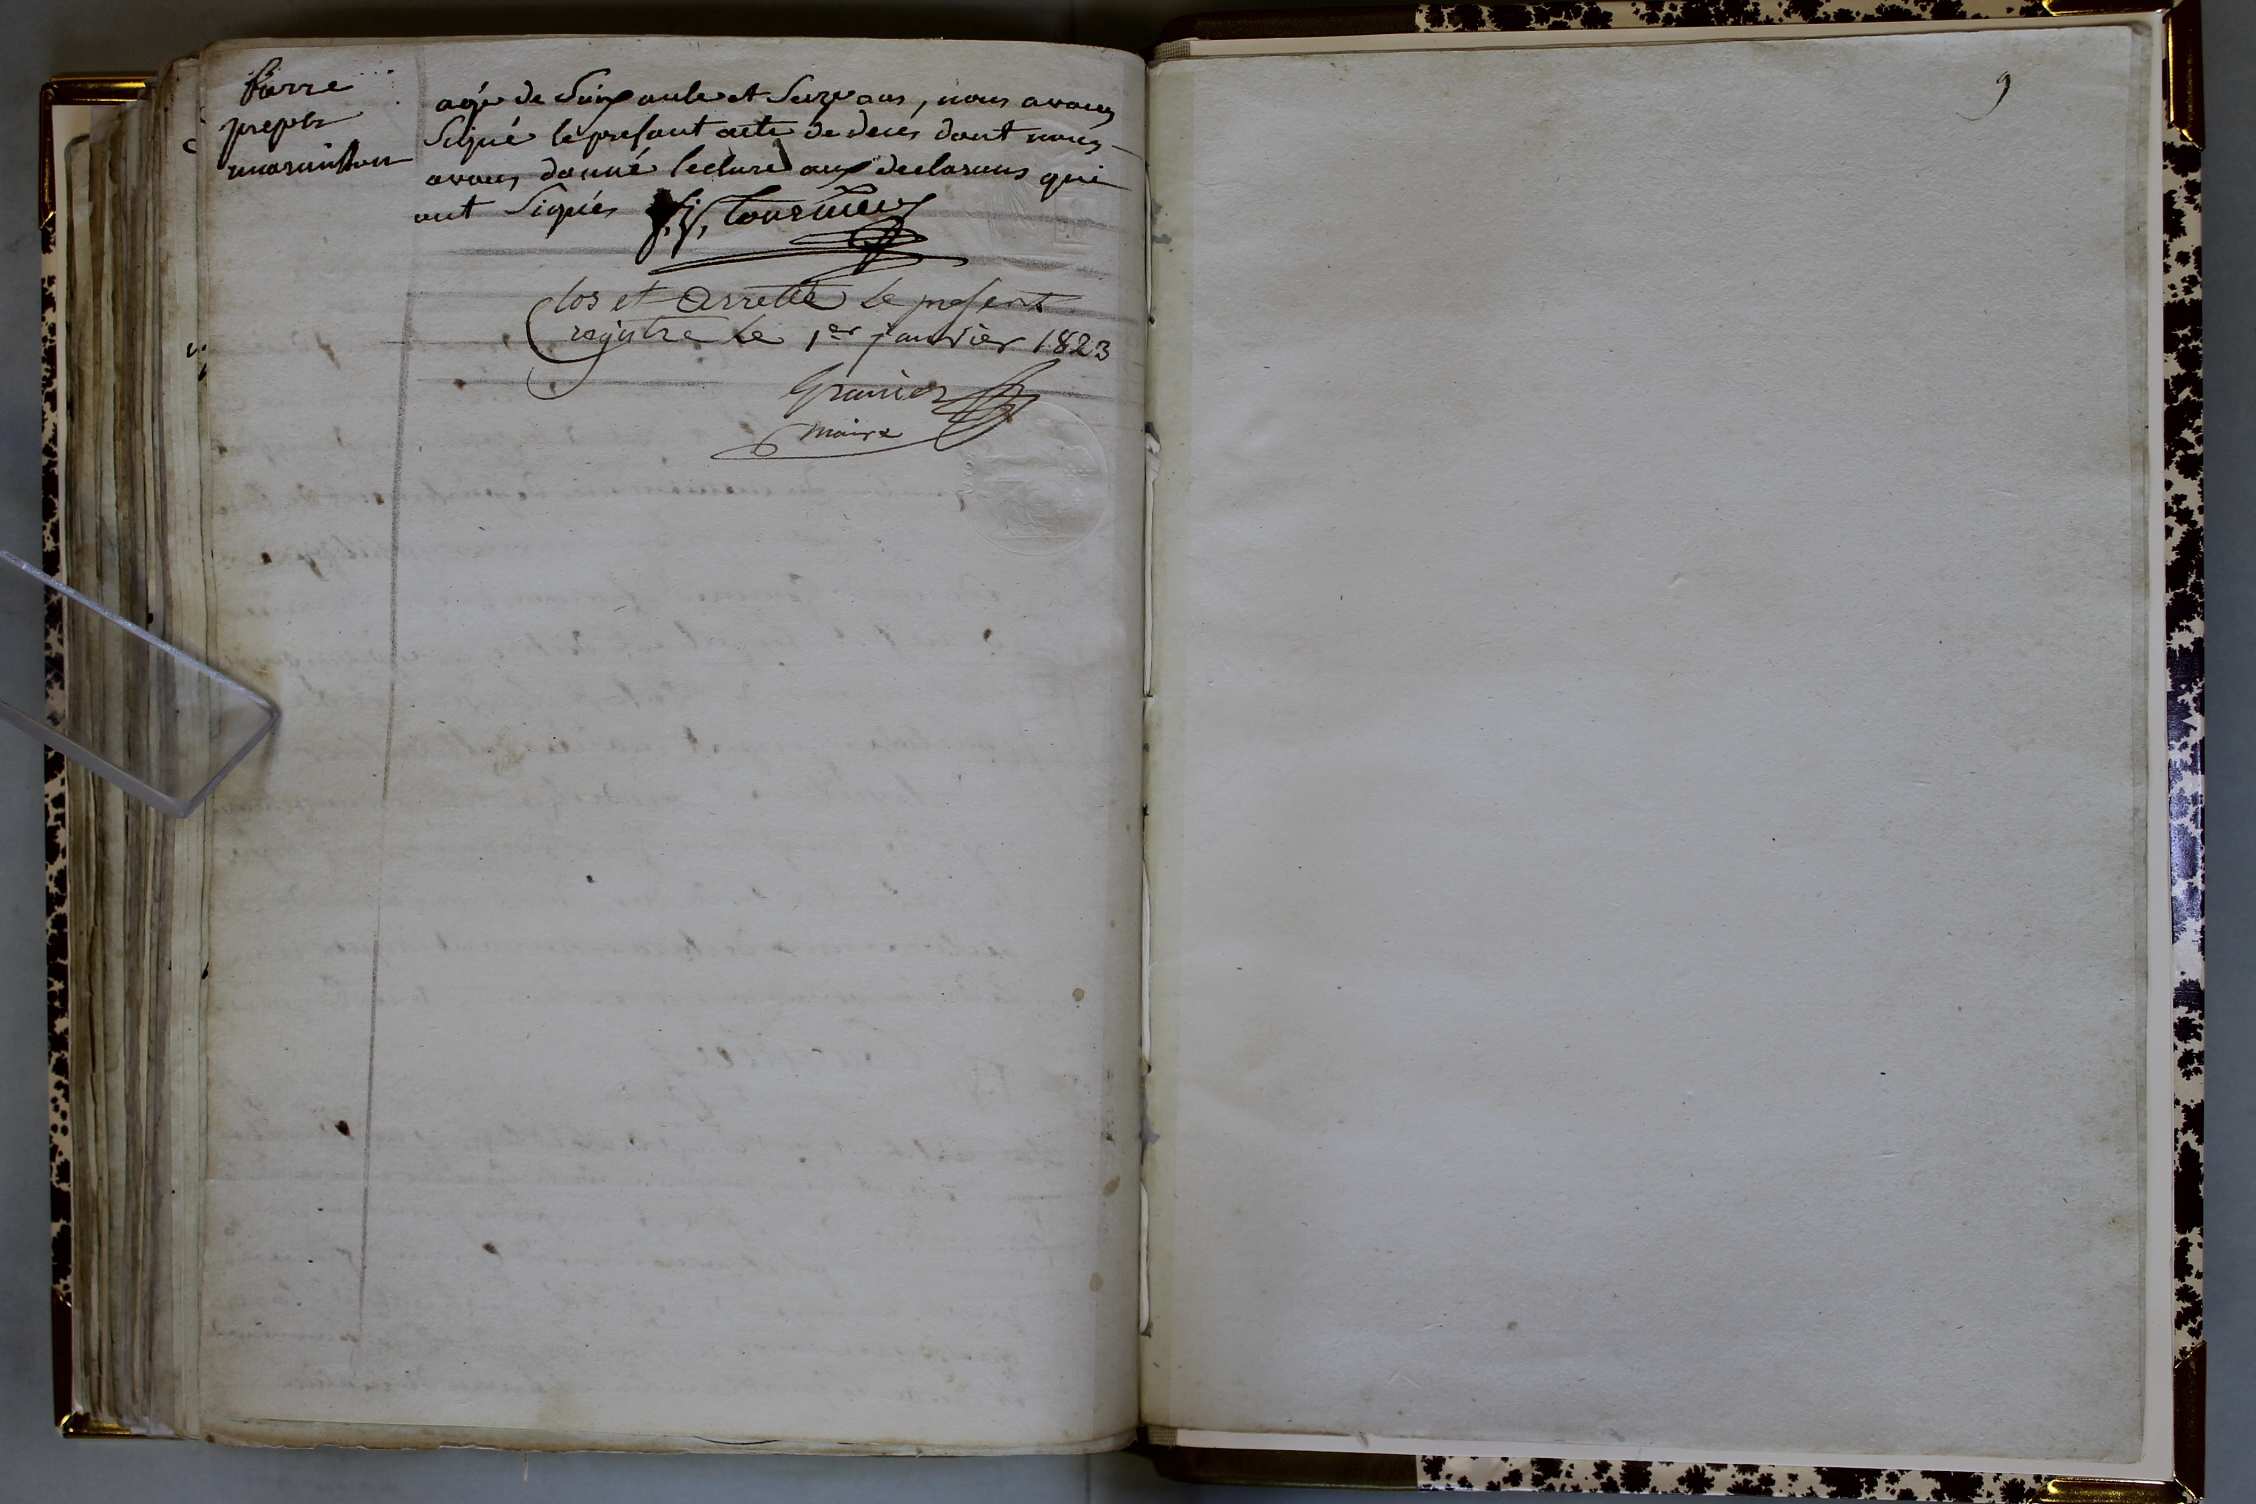 Pierre
agé de Soixante et Seize ans, nous avons
Signé le present acte de deces dont nous
avons donné lecture aux declarans qui
ont Signés f. j. Tournier
Clos et Arretté le present
registre le 1er janvier 1823
Granier
Maire
9